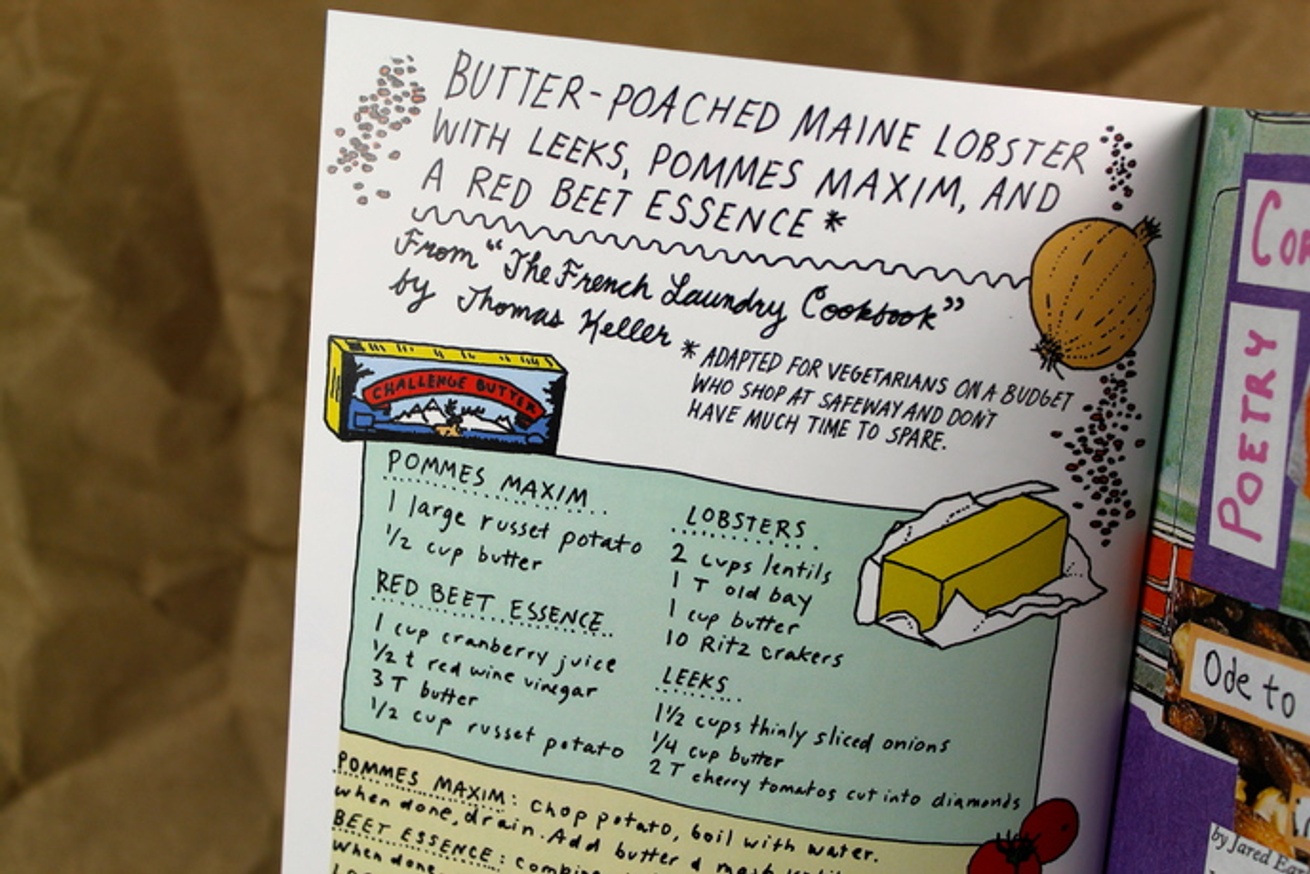 BUTTER-POACHED MAINE LOBSTER
WITH LEEKS, POMMES MAXIM, AND
A RED BEET ESSENCE *
From "The French Laundry Cookbook"
by Thomas Keller
* ADAPTED FOR VEGETARIANS ON A BUDGET
WHO SHOP AT SAFEWAY AND DON'T
HAVE MUCH TIME TO SPARE.
CHALLENGE BUTTER
POMMES MAXIM
1 large russet potato
1/2 cup butter
RED BEET ESSENCE
1 cup cranberry juice
1/2 t red wine vinegar
3 T butter
1/2 cup russet potato
LOBSTERS
2 cups lentils
1 T old bay
1 cup butter
10 Ritz crakers
LEEKS
1 1/2 cups thinly sliced onions
1/4 cup butter
2 T cherry tomatos cut into diamonds
POMMES MAXIM: Chop potato, boil with water.
when done, drain. Add butter & mash
BEET ESSENCE: Combine
when done
POETRY
Ode to
by Jared